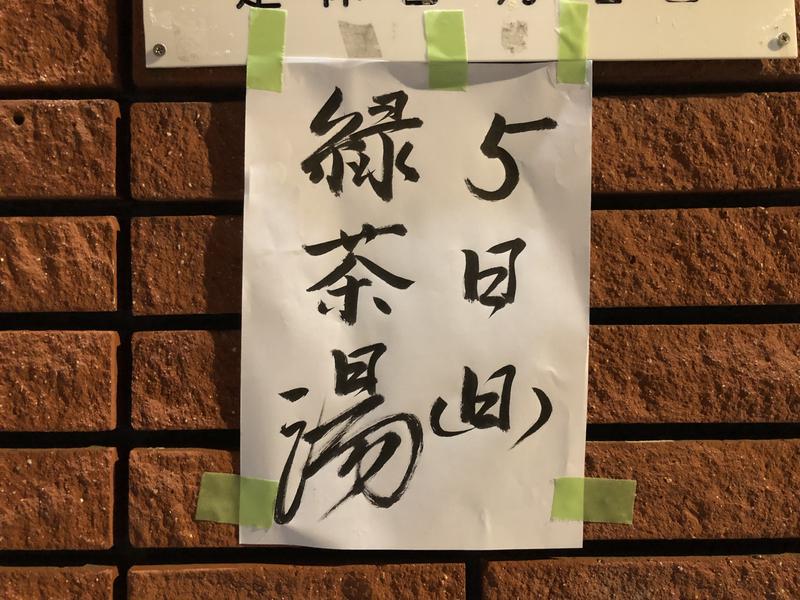 5日(日)
緑茶湯